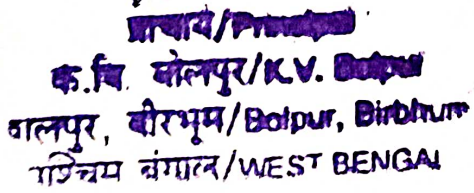 प्राचार्य/Principal
के.वि. बोलपुर/K.V. Bolpur
बोलपुर, बीरभूम/Bolpur, Birbhum
पश्चिम बंगाल/WEST BENGAL